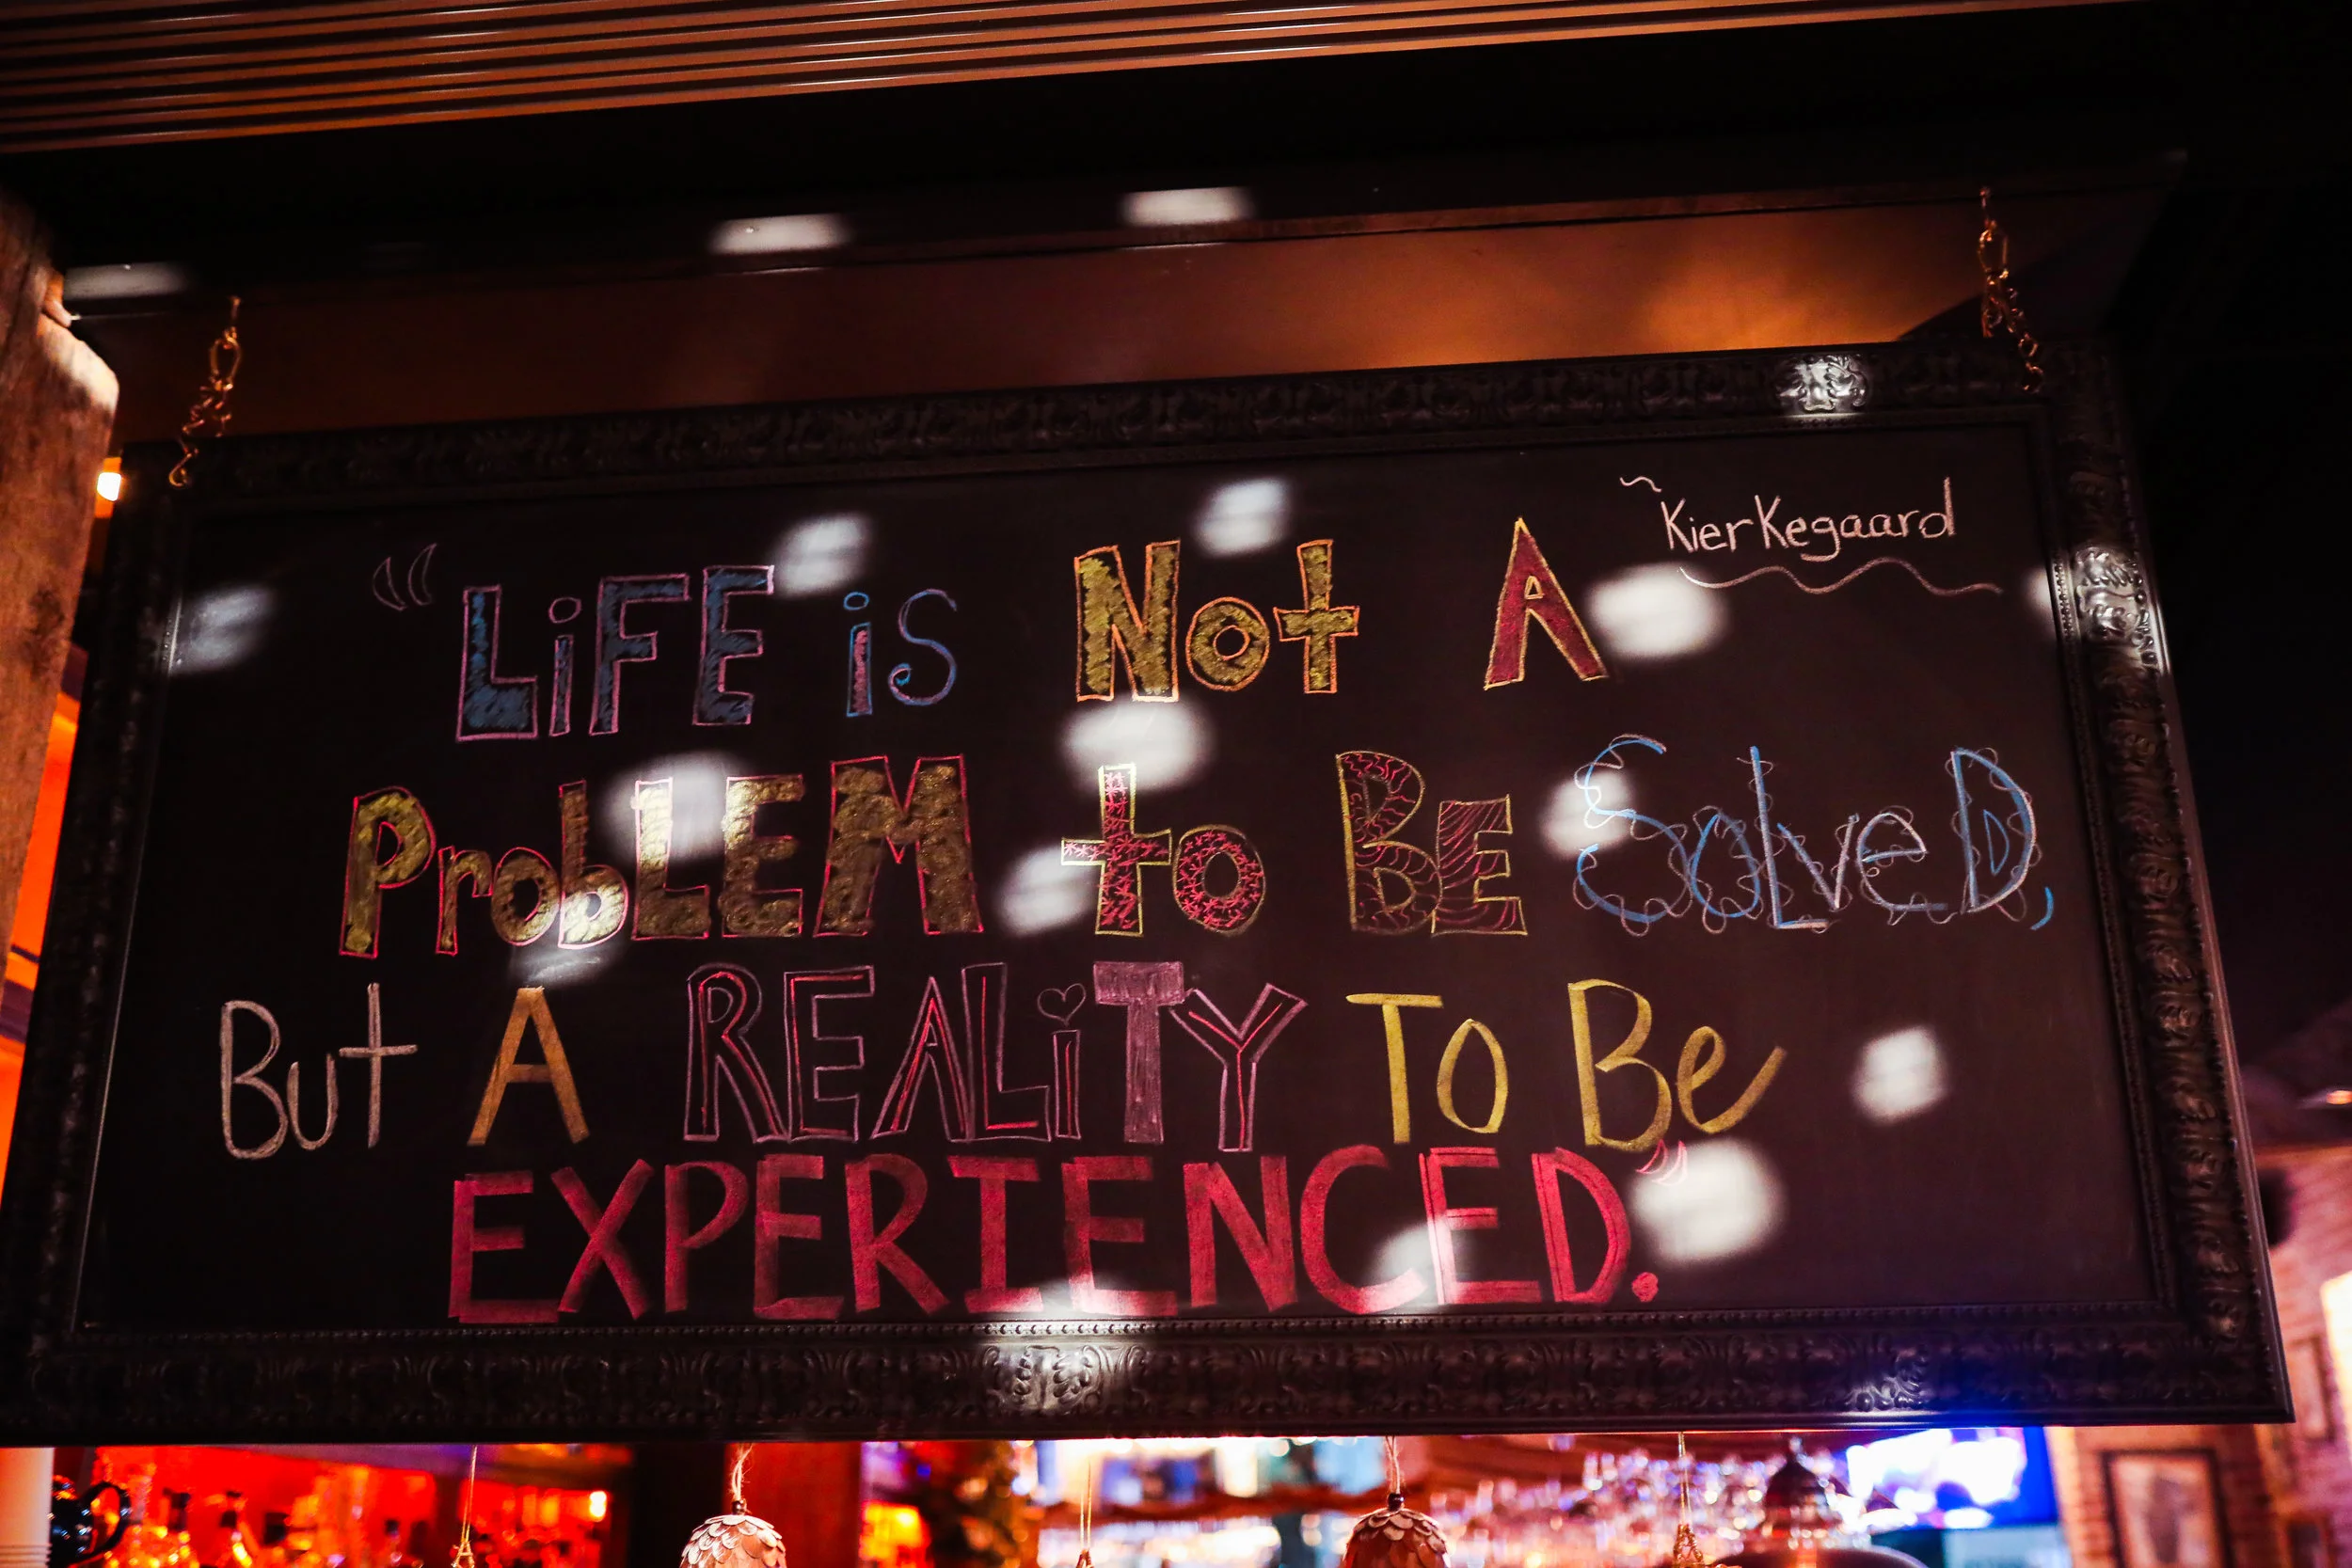 ~Kierkegaard
"LiFE is Not A
ProbLEM to BE SoLveD,
But A REALiTY To Be
EXPERIENCED."